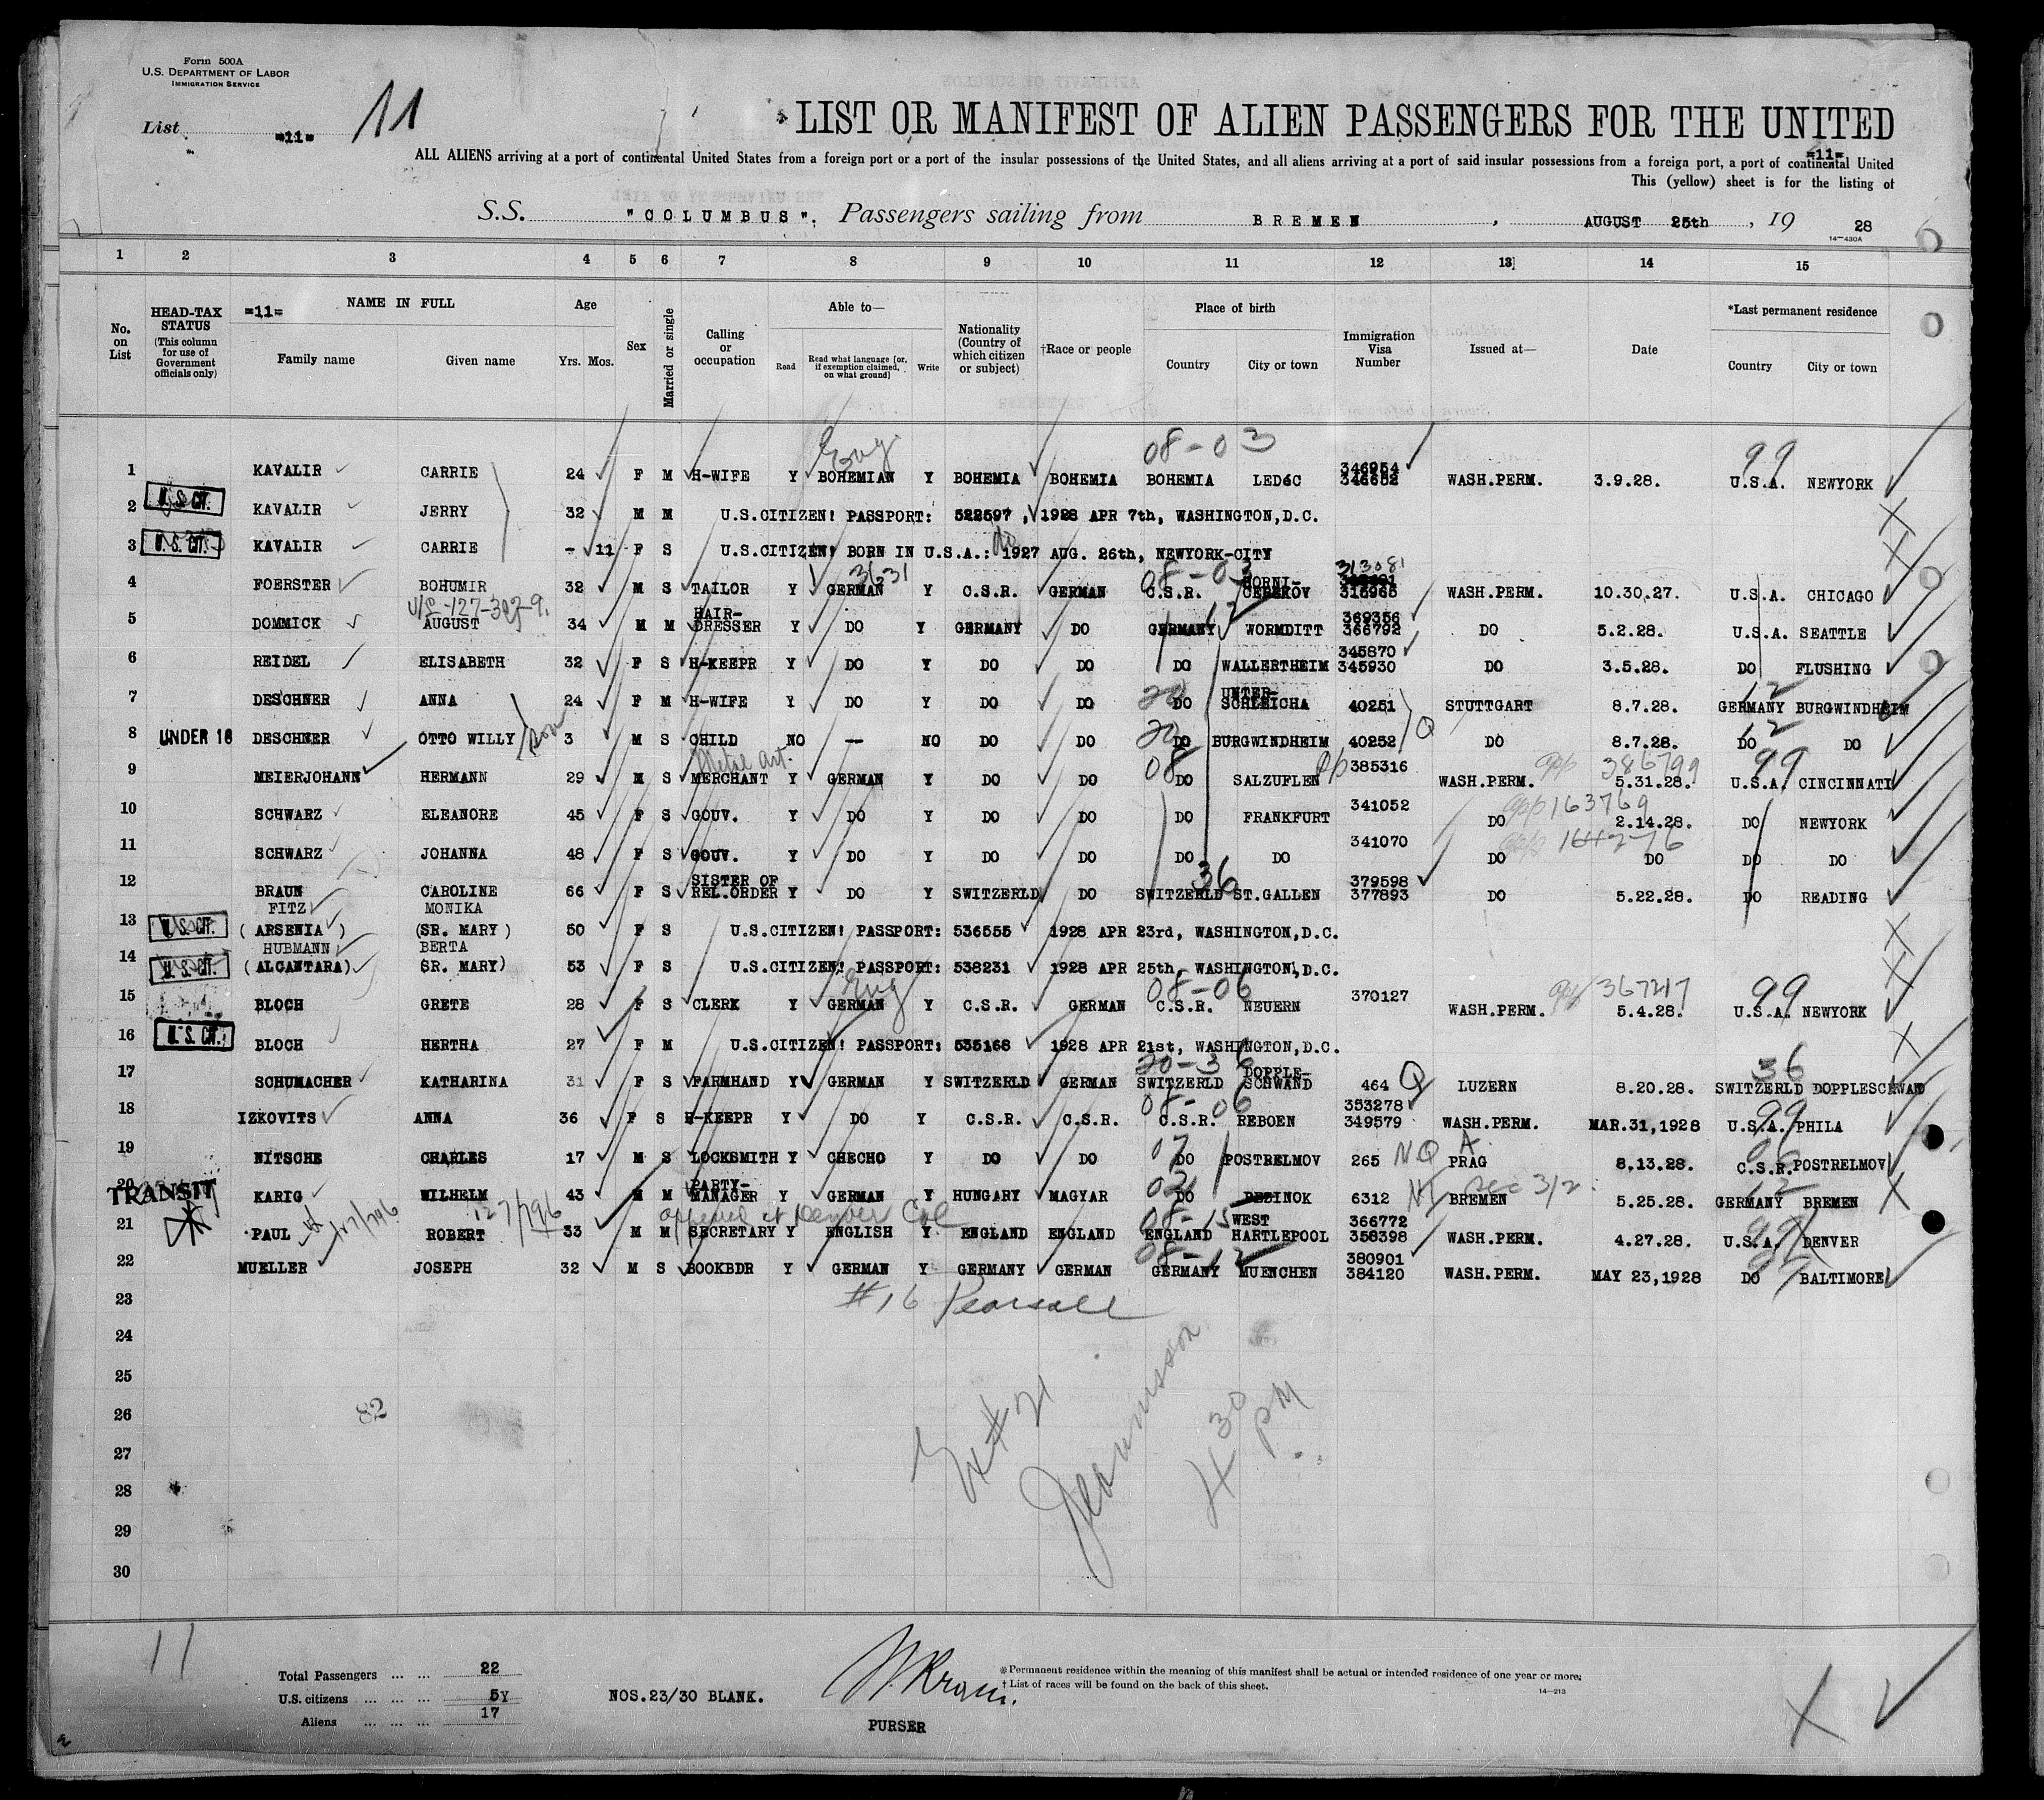 Form 500A
U.S. DEPARTMENT OF LABOR
IMMIGRATION SERVICE
List =11= 11
LIST OR MANIFEST OF ALIEN PASSENGERS FOR THE UNITED
=11=
ALL ALIENS arriving at a port of continental United States from a foreign port or a port of the insular possessions of the United States, and all aliens arriving at a port of said insular possessions from a foreign port, a port of continental United
This (yellow) sheet is for the listing of
S.S. "COLUMBUS". Passengers sailing from BREMEN, AUGUST 25th, 19 28
14—430A
1 2 3 4 5 6 7 8 9 10 11 12 13 14 15
No. on List
HEAD-TAX STATUS (This column for use of Government officials only)
=11= NAME IN FULL
Family name Given name
Age Yrs. Mos.
Sex
Married or single
Calling or occupation
Able to—
Read Read what language [or, if exemption claimed, on what ground] Write
Nationality (Country of which citizen or subject)
†Race or people
Place of birth
Country City or town
Immigration Visa Number
Issued at—
Date
*Last permanent residence
Country City or town
Eng. 08-03 99
1 KAVALIR CARRIE 24 F M H-WIFE Y BOHEMIAN Y BOHEMIA BOHEMIA BOHEMIA LEDéC 346954 346652 WASH.PERM. 3.9.28. U.S.A. NEWYORK
2 U.S. CIT. KAVALIR JERRY 32 M M U.S.CITIZEN! PASSPORT: 522597, 1928 APR 7th, WASHINGTON,D.C.
3 U.S. CIT. KAVALIR CARRIE - 11 F S U.S.CITIZEN! BORN IN U.S.A.: 1927 AUG. 26th, NEWYORK-CITY
3631 08-03 313081
4 FOERSTER BOHUMIR 32 M S TAILOR Y GERMAN Y C.S.R. GERMAN C.S.R. HORNI- CEREKOV 315965 WASH.PERM. 10.30.27. U.S.A. CHICAGO
5 DOMMICK AUGUST 34 M M HAIR- DRESSER Y DO Y GERMANY DO GERMANY WORMDITT 369356 366792 DO 5.2.28. U.S.A. SEATTLE
6 REIDEL ELISABETH 32 F S H-KEEPR Y DO Y DO DO DO WALLERTHEIM 345870 345930 DO 3.5.28. DO FLUSHING
7 DESCHNER ANNA 24 F M H-WIFE Y DO Y DO DO 20 DO UNTER- SCHLEICHA 40251 STUTTGART 8.7.28. 12 GERMANY BURGWINDHEIM
8 UNDER 16 DESCHNER OTTO WILLY son 3 M S CHILD NO — NO DO DO 20 DO BURGWINDHEIM 40252 Q DO 8.7.28. 12 DO DO
Metal art.
9 MEIERJOHANN HERMANN 29 M S MERCHANT Y GERMAN Y DO DO 08 DO SALZUFLEN 385316 WASH.PERM. app 386799 5.31.28. 99 U.S.A. CINCINNATI
10 SCHWARZ ELEANORE 45 F S GOUV. Y DO Y DO DO DO FRANKFURT 341052 DO app 163769 2.14.28. DO NEWYORK
11 SCHWARZ JOHANNA 48 F S GOUV. Y DO Y DO DO DO DO 341070 DO app 164276 DO DO DO
12 BRAUN CAROLINE 66 F S SISTER OF REL.ORDER Y DO Y SWITZERLD DO SWITZERLD 36 ST.GALLEN 379598 377893 DO 5.22.28. DO READING
FITZ MONIKA
13 U.S. CIT. (ARSENIA) (SR. MARY) 50 F S U.S.CITIZEN! PASSPORT: 536555 1928 APR 23rd, WASHINGTON,D.C.
HUBMANN BERTA
14 U.S. CIT. (ALCANTARA) SR. MARY) 53 F S U.S.CITIZEN! PASSPORT: 538231 1928 APR 25th, WASHINGTON,D.C.
Eng 08-06 99
15 BLOCH GRETE 28 F S CLERK Y GERMAN Y C.S.R. GERMAN C.S.R. NEUERN 370127 WASH.PERM. app 367217 5.4.28. U.S.A. NEWYORK
16 U.S. CIT. BLOCH HERTHA 27 F M U.S.CITIZEN! PASSPORT: 535168 1928 APR 21st, WASHINGTON,D.C.
20-36 36
17 SCHUMACHER KATHARINA 31 F S FARMHAND Y GERMAN Y SWITZERLD GERMAN SWITZERLD DOPPLE- SCHWAND 464 Q LUZERN 8.20.28. SWITZERLD DOPPLESCHWAND
08-06 99
18 IZKOVITS ANNA 36 F S H-KEEPR Y DO Y C.S.R. C.S.R. C.S.R. REBOEN 353278 349579 WASH.PERM. MAR.31,1928 U.S.A. PHILA
19 NITSCHE CHARLES 17 M S LOCKSMITH Y CHECHO Y DO DO DO POSTRELMOV 265 NQ PRAG 8.13.28. 06 C.S.R. POSTRELMOV
20 TRANSIT KARIG WILHELM 43 M M PARTY- MANAGER Y GERMAN Y HUNGARY MAGYAR DO DEZINOK 6312 BREMEN Sec 3/2. 5.25.28. 12 GERMANY BREMEN
127/796
21 PAUL ROBERT 33 M M SECRETARY Y ENGLISH Y ENGLAND ENGLAND 08-15 ENGLAND WEST HARTLEPOOL 366772 358398 WASH.PERM. 4.27.28. 99 U.S.A. DENVER
22 MUELLER JOSEPH 32 M S BOOKBDR Y GERMAN Y GERMANY GERMAN 08-12 GERMANY MUENCHEN 380901 384120 WASH.PERM. MAY 23,1928 DO BALTIMORE
23 #16 Pearsall
24
25
26 82
27
28
29
30
#21
4 30 PM
11
Total Passengers ... ... 22
U.S. citizens ... ... ... 5Y
Aliens ... ... ... 17
NOS.23/30 BLANK.
PURSER
* Permanent residence within the meaning of this manifest shall be actual or intended residence of one year or more.
† List of races will be found on the back of this sheet.
14—213